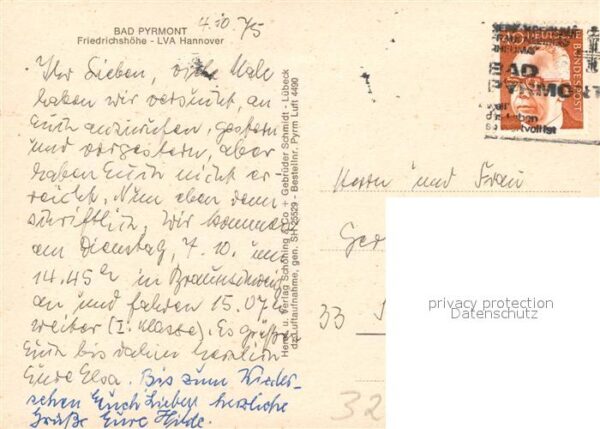 BAD PYRMONT
Friedrichshöhe - LVA Hannover
4.10.75
Ihr Lieben, viele Male
haben wir versucht, an
Euch anzurufen, gestern
und vorgestern, aber
haben Euch nicht er-
reicht. Nun eben dann
schriftlich, wir kommen
am Dienstag, 7.10. um
14.45 in Braunschweig
an und fahren 15.07
weiter (I. Klasse). Es grüßen
Euch bis dahin herzlich
Eure Elsa. Bis zum Wieder-
sehen Euch Lieben herzliche
Grüße Eure Hilde.
Herst. u. Verlag Schöning & Co + Gebrüder Schmidt - Lübeck
Luftaufnahme, gen. SH - Bestellnr. Pyrm Luft 4490
DEUTSCHE BUNDESPOST
BAD
PYRMONT
Herrn und Frau
Ger
33
32
privacy protection
Datenschutz